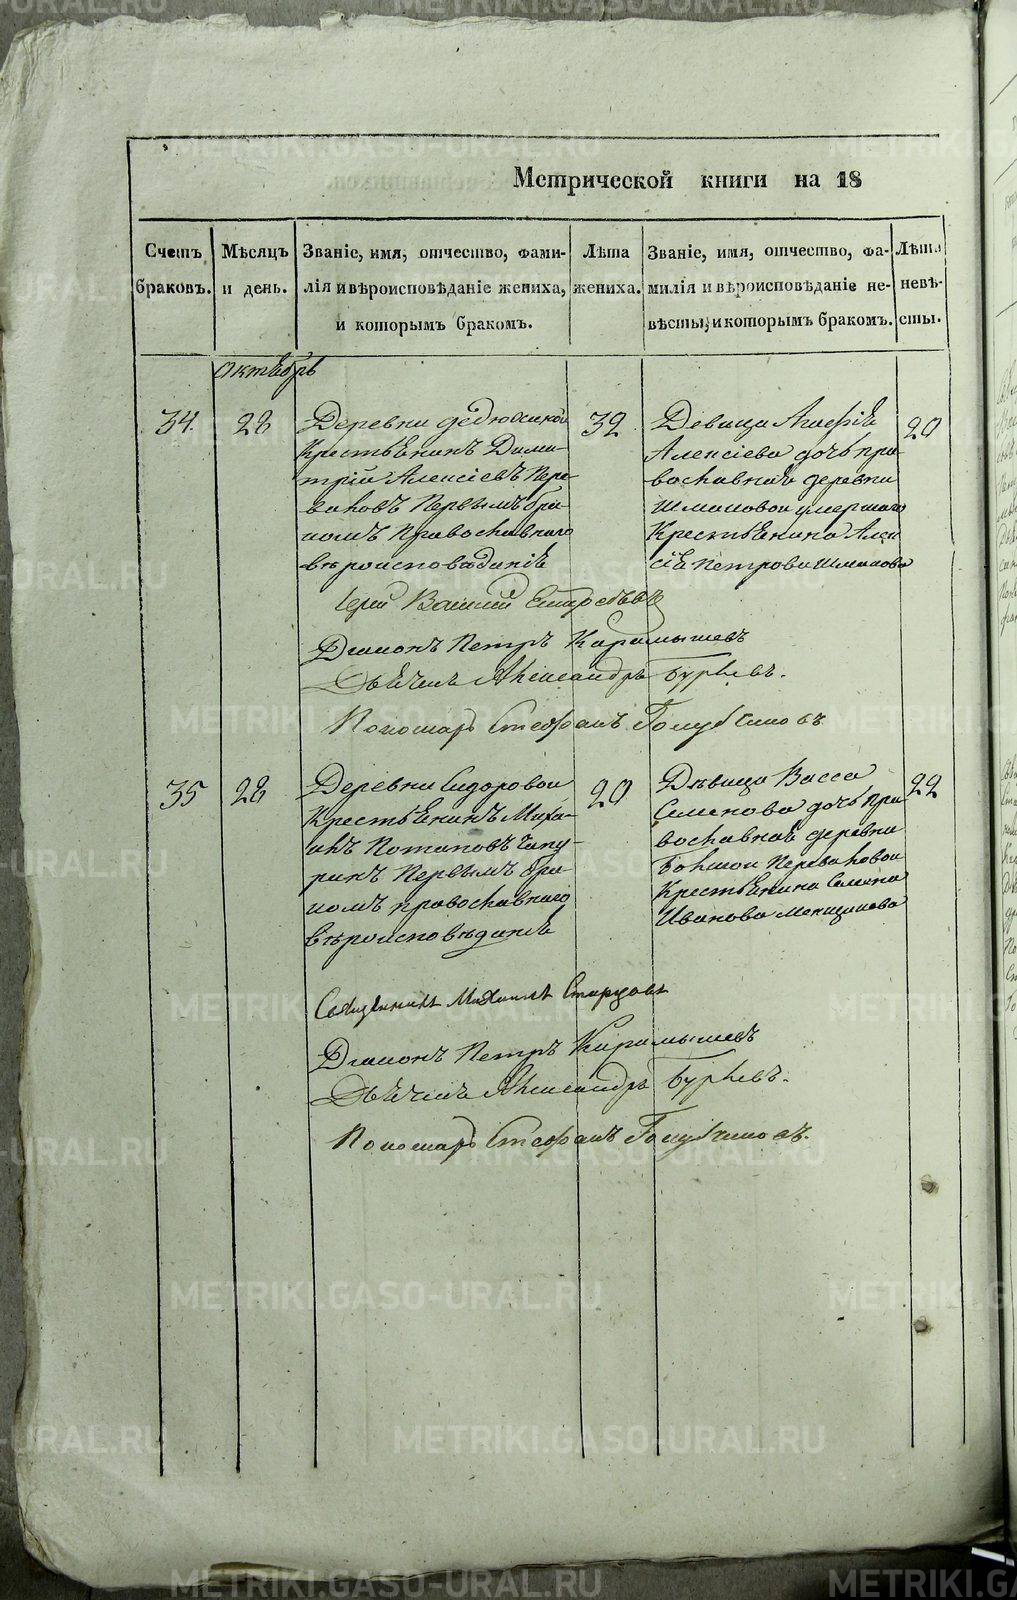 Метрической книги на 18
Счетъ браковъ.
Мѣсяцъ и день.
Званіе, имя, отчество, фами-
лія и вѣроисповѣданіе жениха,
и которымъ бракомъ.
Лѣта
жениха.
Званіе, имя, отчество, фа-
милія и вѣроисповѣданіе не-
вѣсты, и которымъ бракомъ.
Лѣта
невѣ-
сты.
Октябрь
34
28
Деревни
Крестьянинъ Дими-
трій Алексіевъ Пере-
валовъ Первымъ бра-
комъ православнаго
вѣроисповѣданіе
32
Девица Агафія
Алексіева дочь пра-
вославная деревни
Шмаковой умершаго
Крестьянина Алек
сія Петрова Шмакова
20
Іерей Василій
Діаконъ Петръ Карамышевъ
Дьячекъ Александръ Бурлевъ.
Пономарь Стефанъ Голубчиковъ
35
28
Деревни Сидоровой
Крестьянинъ Миха-
илъ Потаповъ Чапу-
ринъ Первымъ бра-
комъ православнаго
вѣроисповѣданіе
20
Дѣвица Васса
Семенова дочь пра
вославная деревни
Большой Переваловой
Крестьянина Семена
Иванова Менщикова
22
Священникъ Михаилъ Старцовъ
Діаконъ Петръ Карамышевъ
Дьячекъ Александръ Бурлевъ.
Пономарь Стефанъ Голубчиковъ.
METRIKI.GASO-URAL.RU